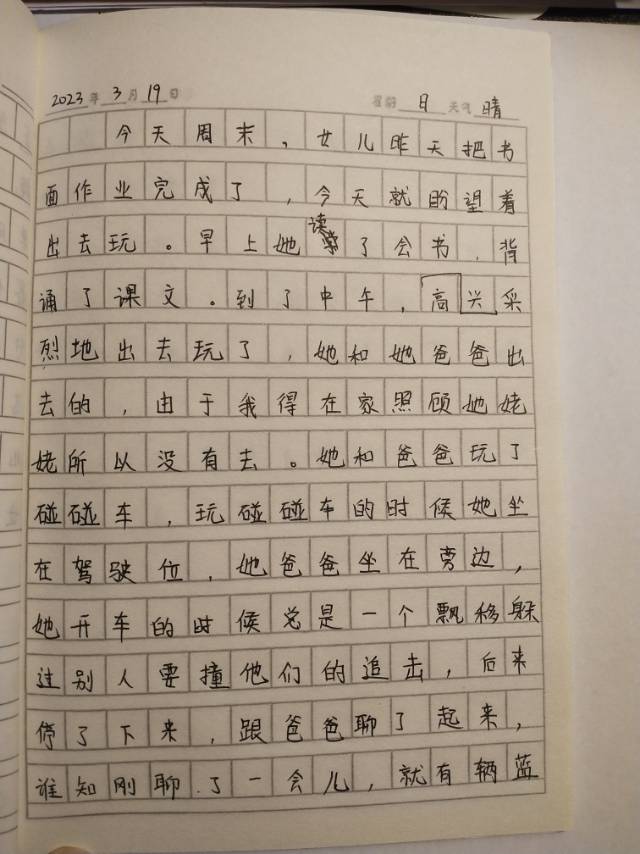 2023年3月19日 星期日 天气晴
今天周末,女儿昨天把书
面作业完成了,今天就盼望着
出去玩。早上她读了会书,背
诵了课文。到了中午,高兴采
烈地出去玩了,她和她爸爸出
去的,由于我得在家照顾她姥
姥所以没有去。她和爸爸玩了
碰碰车,玩碰碰车的时候她坐
在驾驶位,她爸爸坐在旁边,
她开车的时候总是一个飘移躲
过别人要撞他们的追击,后来
停了下来,跟爸爸聊了起来,
谁知刚聊了一会儿,就有辆蓝